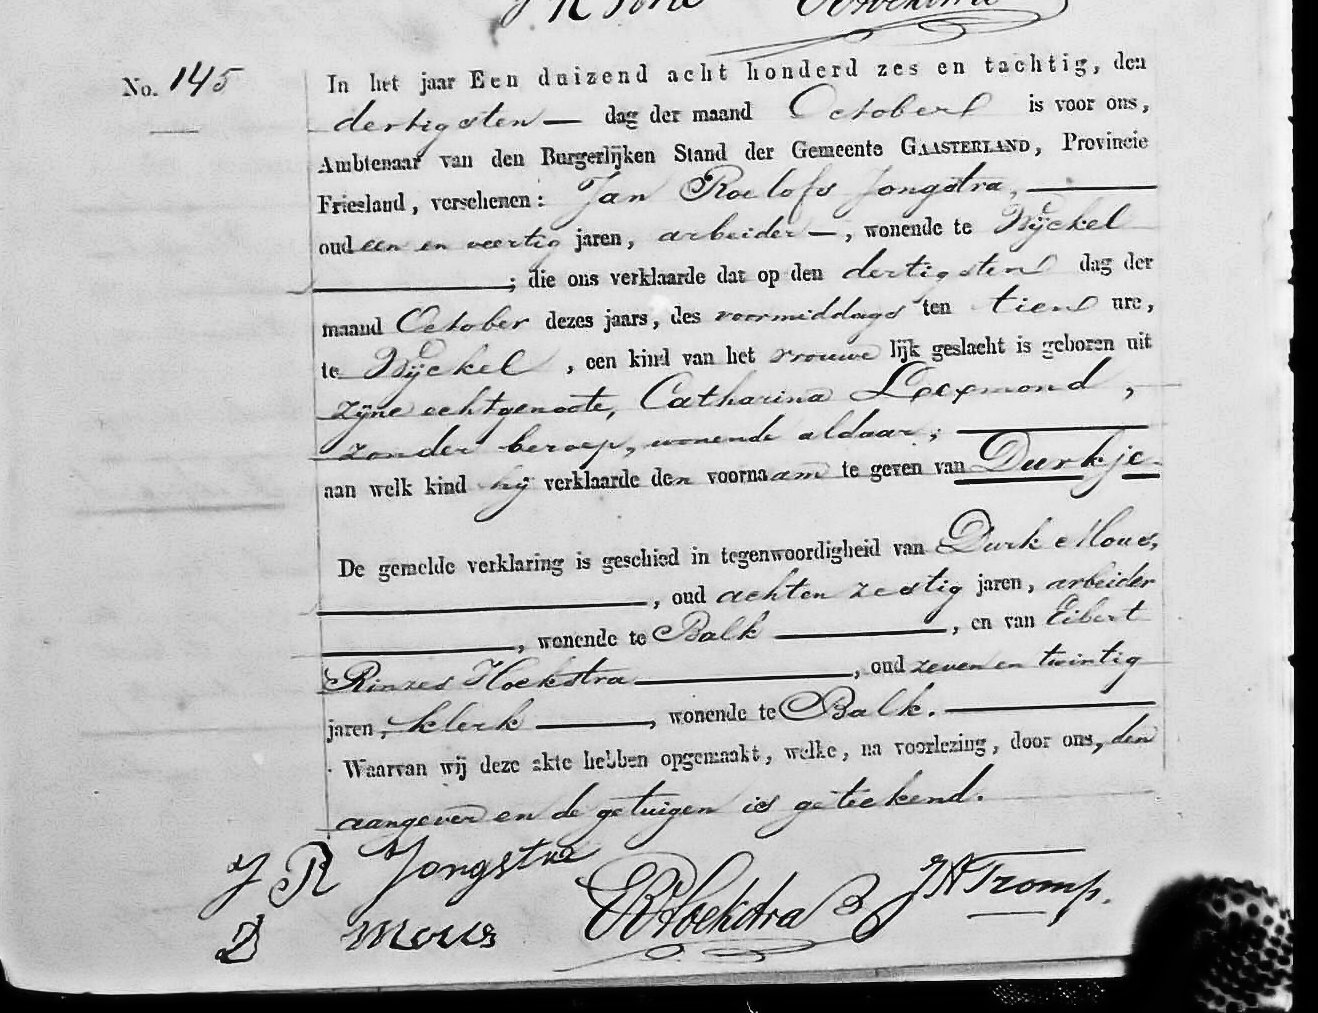 No. 145
In het jaar Een duizend acht honderd zes en tachtig, den
dertigsten dag der maand October is voor ons,
Ambtenaar van den Burgerlijken Stand der Gemeente GAASTERLAND, Provincie
Friesland, verschenen: Jan Roelofs Jongstra,
oud een en veertig jaren, arbeider, wonende te Wijckel
; die ons verklaarde dat op den dertigsten dag der
maand October dezes jaars, des voormiddags ten tien ure,
te Wijckel, een kind van het vrouwelijk geslacht is geboren uit
zijne echtgenoote, Catharina,
zonder beroep, wonende aldaar;
aan welk kind hij verklaarde den voornaam te geven van Durkje.
De gemelde verklaring is geschied in tegenwoordigheid van Durk Mous,
, oud achten zestig jaren, arbeider
, wonende te Balk, en van Eibert
Rinzes Hoekstra, oud zeven en twintig
jaren, klerk, wonende te Balk.
Waarvan wij deze akte hebben opgemaakt, welke, na voorlezing, door ons, den
aangever en de getuigen is geteekend.
J R Jongstra
D Mous
ER Hoekstra
Tromp.